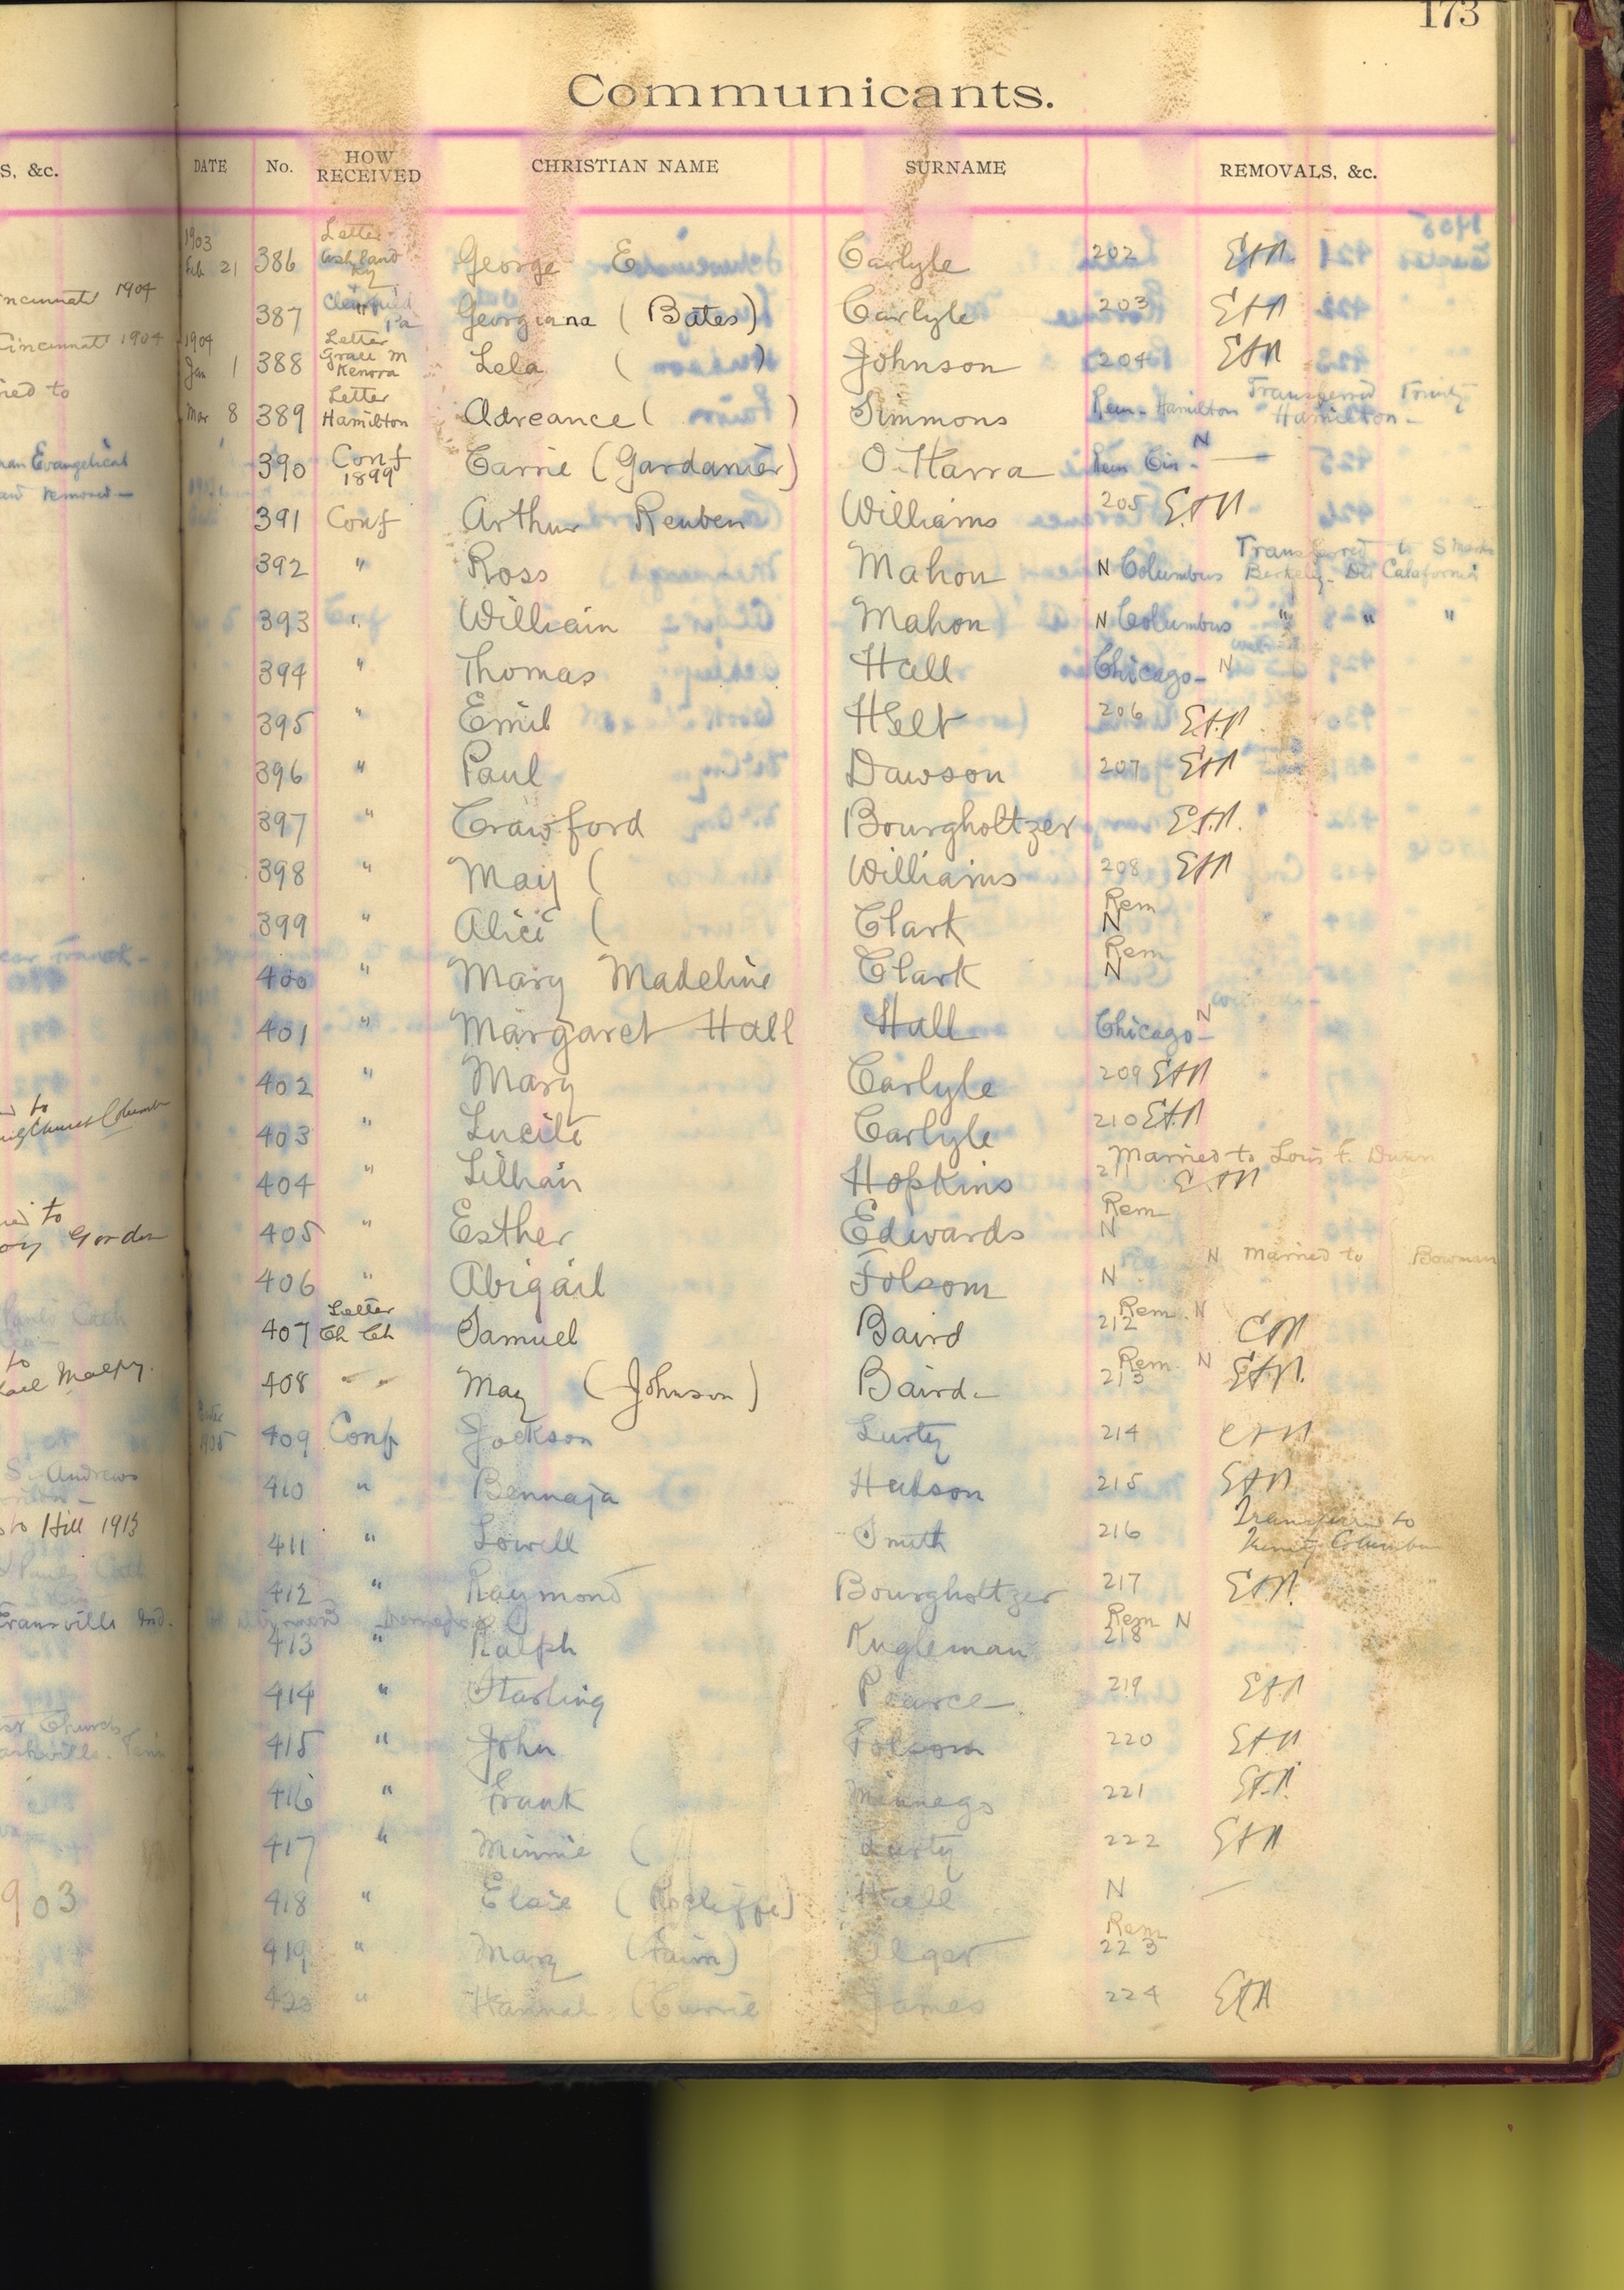 173
Communicants.
S, &c. DATE No. HOW RECEIVED CHRISTIAN NAME SURNAME REMOVALS, &c.
1903 Feb 21 386 Letter Ashland Ky George E Carlyle 202 EAN
387 Clearfield Pa Georgiana (Bates) Carlyle 203 EAN
1904 Jan 1 388 Letter Grace M Kenova Lela ( ) Johnson 204 EAN
Mar 8 389 Letter Hamilton Adreance ( ) Simmons Rem - Hamilton Transferred Trinity Hamilton -
390 Conf 1899 Carrie (Gardanier) O'Harra Rem Cin - N —
391 Conf Arthur Reuben Williams 205 EAN
392 " Ross Mahon N Columbus Transferred to S Marks Berkely - Calafornia
393 " William Mahon N Columbus " " "
394 " Thomas Hall Chicago - N
395 " Emil Helt 206 EAN
396 " Paul Dawson 207 EAN
397 " Crawford Bourgholtzer EAN.
398 " May ( Williams 208 EAN
399 " Alice ( Clark Rem N
400 " Mary Madeline Clark Rem N
401 " Margaret Hall Hall Chicago - N
402 " Mary Carlyle 209 EAN
403 " Lucile Carlyle 210 EAN
404 " Lillian Hopkins 211 Married to Louis F. Dunn EAN
405 " Esther Edwards Rem N
406 " Abigail Folsom N N Married to Bowman
407 Letter Ch Ch Samuel Baird 212 Rem. N
408 " " May (Johnson) Baird - 213 Rem. N EAN.
Easter 1905 409 Conf Jackson Lurty 214 EAN
410 " Bennaja Hudson 215 EAN
411 " Lowell Smith 216 Transferred to Trinity Columbus
412 " Raymond Bourgholtzer 217 EAN.
413 " Ralph Kugleman Rem N 218
414 " Starling Pearce 219 EAN
415 " John Folsom 220 EAN
416 " Frank 221 EAN
417 " Minnie ( Lurty 222 EAN
418 " Hall N —
419 " Mary 223 Rem
420 " Hannah (Currie James 224 EAN
incinnati 1904
Cincinnati 1904
ied to
man Evangelical
removed -
to
to
Gordon
to
S. Andrews
to Hill 1913
Evansville Ind.
903